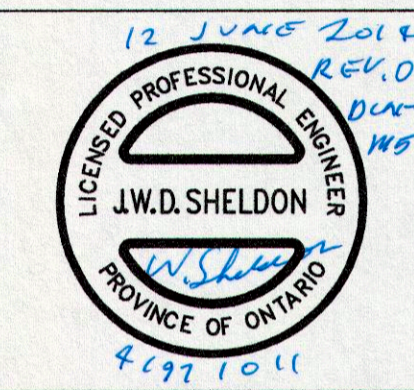 12 JUNE 2014
REV.0
LICENSED PROFESSIONAL ENGINEER
J.W.D. SHELDON
W. Sheldon
PROVINCE OF ONTARIO